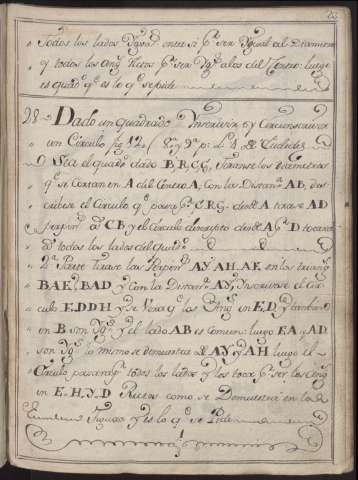 Todos los lados Iguas entre si pr ser Iguas al Diametro
y todos los Angs Rectos pr ser Igs alos del Centro: luego
es quado qe es lo qe se pide
28 Dado un quadrado Inscrivir y Circunscrivir
un Circulo fig 12 4 de Euclides
Sea el quado dado B, R, C, G, tiranse los diametros
qe se Cortan en A del Centro A, Con la Distana AB, des
crivese el Circulo qe pasa pr C, R, G. desde A tirase AD
CB y el Circulo descripto desde A pr D tocara
todos los lados del quado
2a Parte tirese las Perpens AY, AH, AE en los triangs
BAE, BAD y Con la Distana AY, Inscrivase el Cir
culo E, D, D, H y se Vera qe los Angs en E, D, y tambien
en B son Igs y el lado AB es comun: luego EA, y AD
son Igs lo mismo se demuestra de AY, y AH luego el
Circulo pasara pr todos los lados y los toca pr ser los Angs
en E, H, Y, D Rectos como se Demuestra en la
Figura y es lo qe se Pide